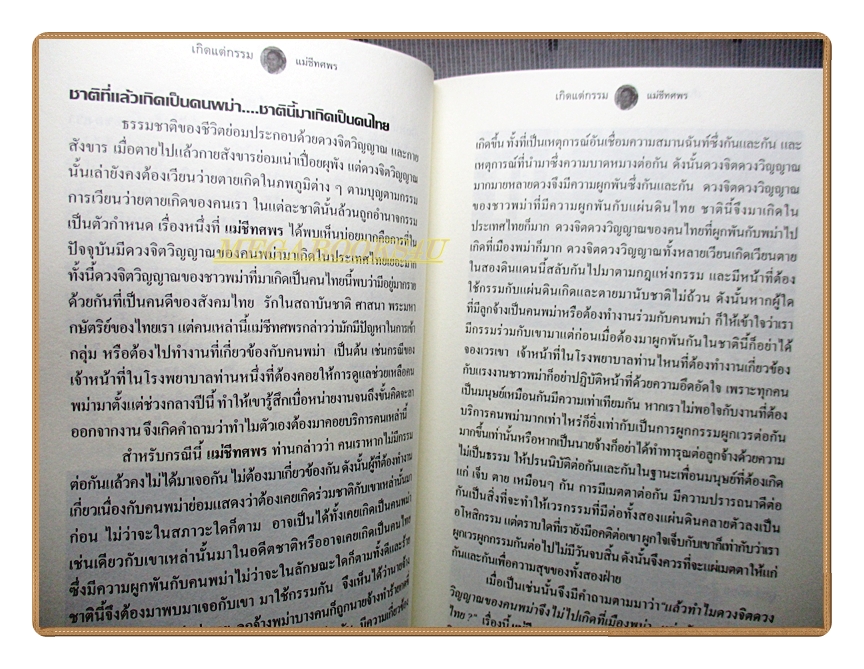 เกิดแต่กรรม แม่ชีทศพร
ชาติที่แล้วเกิดเป็นคนพม่า....ชาตินี้มาเกิดเป็นคนไทย
ธรรมชาติของชีวิตย่อมประกอบด้วยดวงจิตวิญญาณ และกาย
สังขาร เมื่อตายไปแล้วกายสังขารย่อมเน่าเปื่อยผุพัง แต่ดวงจิตวิญญาณ
นั้นเล่ายังคงต้องเวียนว่ายตายเกิดในภพภูมิต่าง ๆ ตามบุญตามกรรม
การเวียนว่ายตายเกิดของคนเรา ในแต่ละชาตินั้นล้วนถูกอำนาจกรรม
เป็นตัวกำหนด เรื่องหนึ่งที่ แม่ชีทศพร ได้พบเห็นบ่อยมากคือการที่ใน
ปัจจุบันมีดวงจิตวิญญาณของคนพม่ามาเกิดในประเทศไทยเยอะมาก
ทั้งนี้ดวงจิตวิญญาณของชาวพม่าที่มาเกิดเป็นคนไทยนี้พบว่ามีอยู่มากราย
ด้วยกันที่เป็นคนดีของสังคมไทย รักในสถาบันชาติ ศาสนา พระมหา
กษัตริย์ของไทยเรา แต่คนเหล่านี้แม่ชีทศพรกล่าวว่ามักมีปัญหาในการเข้า
กลุ่ม หรือต้องไปทำงานที่เกี่ยวข้องกับคนพม่า เป็นต้น เช่นกรณีของ
เจ้าหน้าที่ในโรงพยาบาลท่านหนึ่งที่ต้องคอยให้การดูแลช่วยเหลือคน
พม่ามาตั้งแต่ช่วงกลางปีนี้ ทำให้เขารู้สึกเบื่อหน่ายงานจนถึงขั้นคิดจะลา
ออกจากงาน จึงเกิดคำถามว่าทำไมตัวเองต้องมาคอยบริการคนเหล่านี้
สำหรับกรณีนี้ แม่ชีทศพร ท่านกล่าวว่า คนเราหากไม่มีกรรม
ต่อกันแล้วคงไม่ได้มาเจอกัน ไม่ต้องมาเกี่ยวข้องกัน ดังนั้นผู้ที่ต้องทำงาน
เกี่ยวเนื่องกับคนพม่าย่อมแสดงว่าต้องเคยเกิดร่วมชาติกับเขาเหล่านั้นมา
ก่อน ไม่ว่าจะในสภาวะใดก็ตาม อาจเป็นได้ทั้งเคยเกิดเป็นคนพม่า
เช่นเดียวกับเขาเหล่านั้นมาในอดีตชาติหรืออาจเคยเกิดเป็นคนไทย
ซึ่งมีความผูกพันกับคนพม่าไม่ว่าจะในลักษณะใดก็ตามทั้งดีและร้าย
ชาตินี้จึงต้องมาพบมาเจอกับเขา มาใช้กรรมกัน จึงเห็นได้ว่านายจ้าง
ลูกจ้างพม่าบางคนก็ถูกนายจ้างทำร้าย
มีความเกี่ยวข้อง
เกิดแต่กรรม แม่ชีทศพร
เกิดขึ้น ทั้งที่เป็นเหตุการณ์อันเชื่อมความสมานฉันท์ซึ่งกันและกัน และ
เหตุการณ์ที่นำมาซึ่งความบาดหมางต่อกัน ดังนั้นดวงจิตดวงวิญญาณ
มากมายหลายดวงจึงมีความผูกพันซึ่งกันและกัน ดวงจิตดวงวิญญาณ
ของชาวพม่าที่มีความผูกพันกับแผ่นดินไทย ชาตินี้จึงมาเกิดใน
ประเทศไทยก็มาก ดวงจิตดวงวิญญาณของคนไทยที่ผูกพันกับพม่าไป
เกิดที่เมืองพม่าก็มาก ดวงจิตดวงวิญญาณทั้งหลายเวียนเกิดเวียนตาย
ในสองดินแดนนี้สลับกันไปมาตามกฎแห่งกรรม และมีหน้าที่ต้อง
ใช้กรรมกับแผ่นดินเกิดและตายมานับชาติไม่ถ้วน ดังนั้นหากผู้ใด
ที่มีลูกจ้างเป็นคนพม่าหรือต้องทำงานร่วมกับคนพม่า ก็ให้เข้าใจว่าเรา
มีกรรมร่วมกับเขามาแต่ก่อนเมื่อต้องมาผูกพันกันในชาตินี้ก็อย่าได้
จองเวรเขา เจ้าหน้าที่ในโรงพยาบาลท่านไหนที่ต้องทำงานเกี่ยวข้อง
กับแรงงานชาวพม่าก็อย่าปฏิบัติหน้าที่ด้วยความอึดอัดใจ เพราะทุกคน
เป็นมนุษย์เหมือนกันมีความเท่าเทียมกัน หากเราไม่พอใจกับงานที่ต้อง
บริการคนพม่ามากเท่าไหร่ก็ยิ่งเท่ากับเป็นการผูกกรรมผูกเวรต่อกัน
มากขึ้นเท่านั้นหรือหากเป็นนายจ้างก็อย่าได้ทำทารุณต่อลูกจ้างด้วยความ
ไม่เป็นธรรม ให้ปรนนิบัติต่อกันและกันในฐานะเพื่อนมนุษย์ที่ต้องเกิด
แก่ เจ็บ ตาย เหมือนๆ กัน การมีเมตตาต่อกัน มีความปรารถนาดีต่อ
กันเป็นสิ่งที่จะทำให้เวรกรรมที่มีต่อทั้งสองแผ่นดินคลายตัวลงเป็น
อโหสิกรรม แต่ตราบใดที่เรายังมีอคติต่อเขา ผูกใจเจ็บกับเขาก็เท่ากับว่าเรา
ผูกเวรผูกกรรมกันต่อไปไม่มีวันจบสิ้น ดังนั้นจึงควรที่จะแผ่เมตตาให้แก่
กันและกันเพื่อความสุขของทั้งสองฝ่าย
เมื่อเป็นเช่นนั้นจึงมีคำถามตามมาว่า"แล้วทำไมดวงจิตดวง
วิญญาณของคนพม่าจึงไม่ไปเกิดที่เมืองพม่า
ไทย?" เรื่องนี้
MEGABOOKS4U